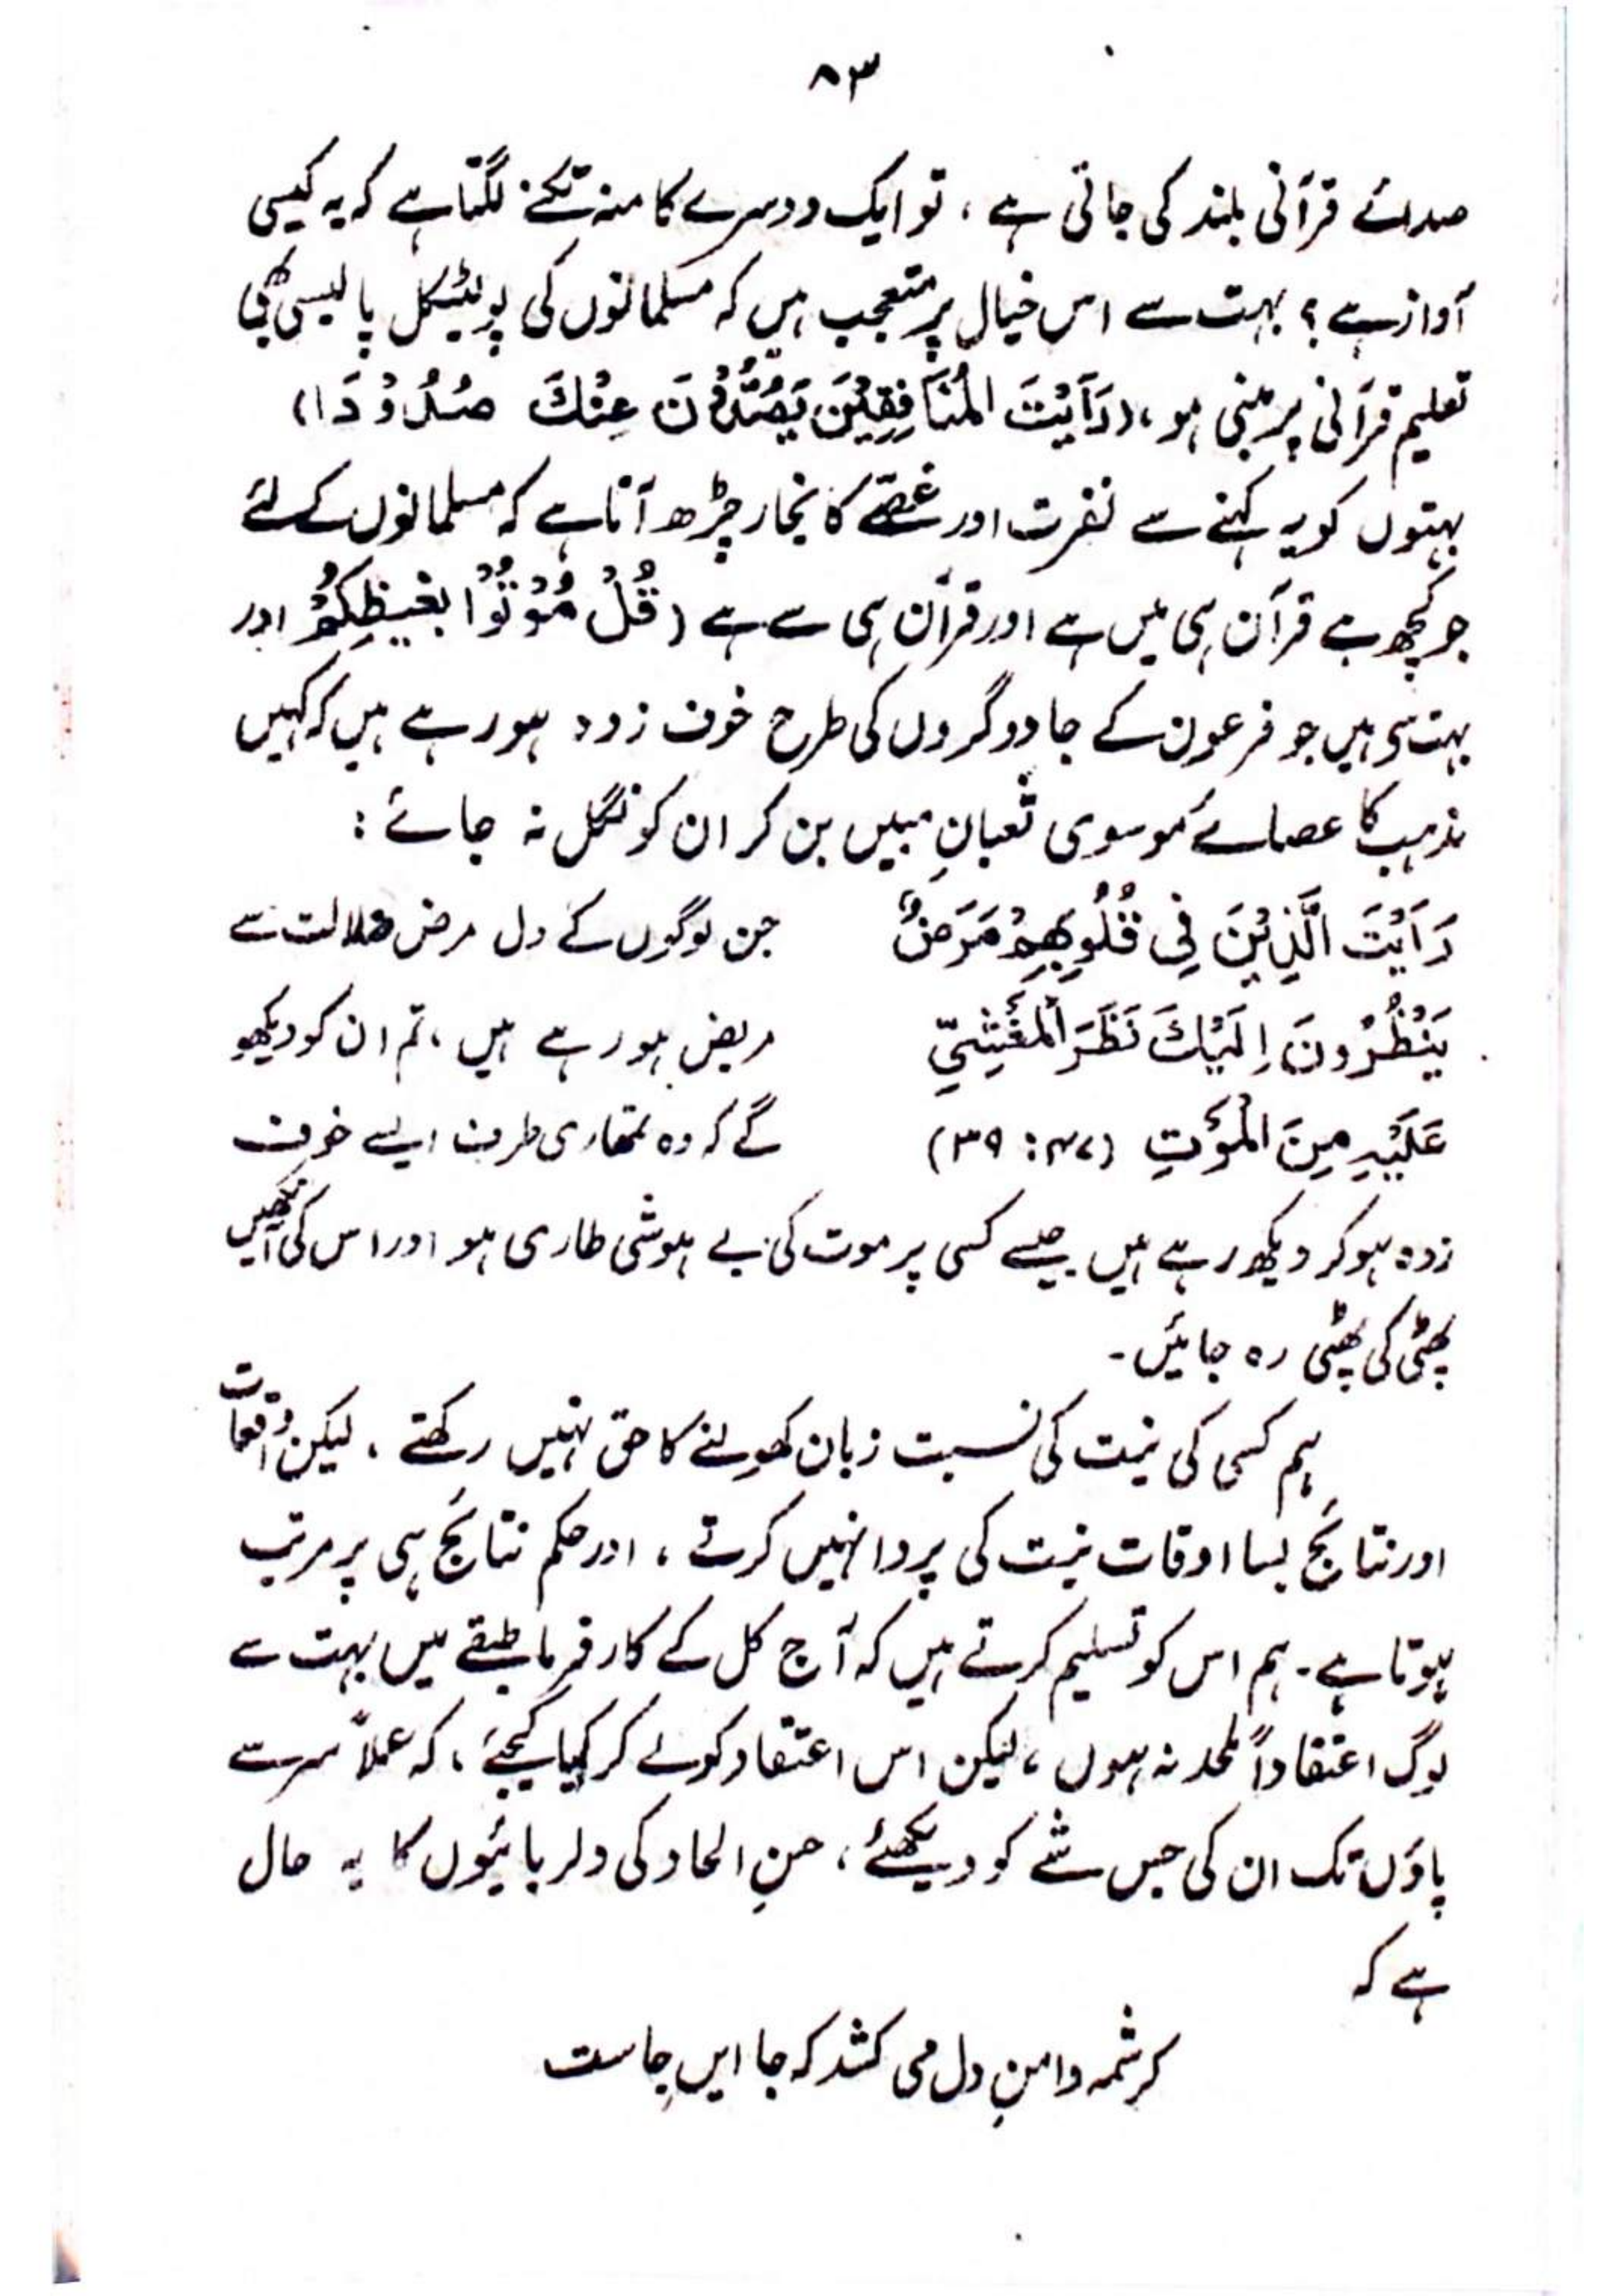 ۸۳
صدائے قرآنی بلند کی جاتی ہے ، تو ایک دوسرے کا منہ تکنے لگتا ہے کہ یہ کیسی
آواز ہے ؟ بہت سے اس خیال پر متعجب ہیں کہ مسلمانوں کی پولیٹیکل پالیسی بھی
تعلیم قرآنی پر مبنی ہو ، (رَاَیْتَ الْمُنَافِقِیْنَ یَصُدُّوْنَ عِنْكَ صُدُوْدَا)
بہتوں کو یہ کہنے سے نفرت اور غصّے کا بخار چڑھ آتا ہے کہ مسلمانوں کے لئے
جو کچھ ہے قرآن ہی میں ہے اور قرآن ہی سے ہے (قُلْ مُوْتُوْا بِغَیْظِکُمْ اور
بہت سی ہیں جو فرعون کے جادوگروں کی طرح خوف زدہ ہو رہے ہیں کہ کہیں
مذہب کا عصائے موسوی ثعبانِ مبیں بن کر ان کو نگل نہ جائے :
رَاَیْتَ الَّذِیْنَ فِی قُلُوبِهِمْ مَرَضٌ جن لوگوں کے دل مرض ضلالت سے
یَنْظُرُونَ اِلَیْكَ نَظَرَ الْمَغْشِيِّ مریض ہو رہے ہیں ، تم ان کو دیکھو
عَلَیْهِ مِنَ الْمَوْتِ (۴۷ : ۳۹) گے کہ وہ تمھاری طرف ایسے خوف
زدہ ہو کر دیکھ رہے ہیں جیسے کسی پر موت کی بے ہوشی طاری ہو اور اس کی آنکھیں
پھٹی کی پھٹی رہ جائیں ۔
ہم کسی کی نیت کی نسبت زبان کھولنے کا حق نہیں رکھتے ، لیکن واقعات
اور نتائج بسا اوقات نیت کی پروا نہیں کرتے ، اور حکم نتائج ہی پر مرتب
ہوتا ہے ۔ ہم اس کو تسلیم کرتے ہیں کہ آج کل کے کارفرما طبقے میں بہت سے
لوگ اعتقاداً ملحد نہ ہوں ، لیکن اس اعتقاد کو لے کر کیا کیجئے ، کہ عملاً سر سے
پاؤں تک ان کی جس شے کو دیکھئے ، حسنِ الحاد کی دلربائیوں کا یہ حال
ہے کہ
کرشمہ دامنِ دل می کشد کہ جا ایں جاست